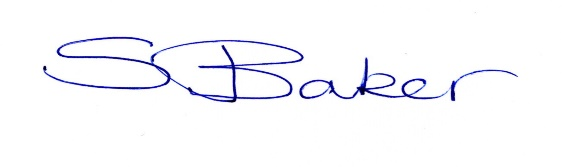 S Baker